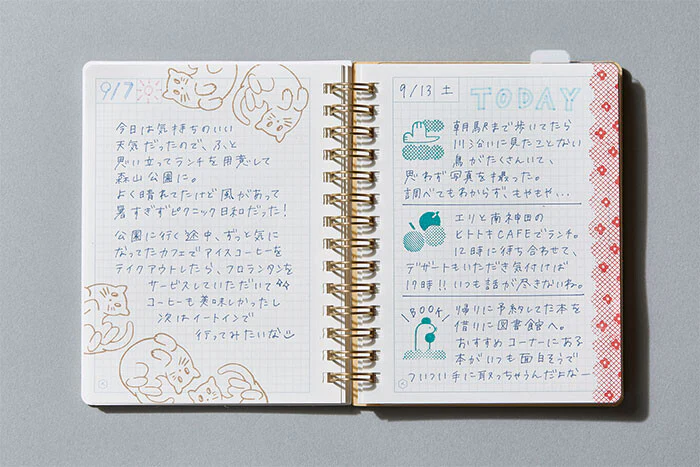 9/7
今日は気持ちのいい
天気だったので、ふと
思い立ってランチを用意して
森山公園に。
よく晴れてたけど風があって
暑すぎずピクニック日和だった!
公園に行く途中、ずっと気に
なってたカフェでアイスコーヒーを
テイクアウトしたら、フロランタンを
サービスしていただいて☆☆
コーヒーも美味しかったし
次はイートインで
行ってみたいな
9/13 土
TODAY
朝駅まで歩いてたら
川沿いに見たことない
鳥がたくさんいて、
思わず写真を撮った。
調べてもわからず、もやもや...
エリと南神田の
ヒトトキCAFEでランチ。
12時に待ち合わせて、
デザートもいただき気付けば
17時!!いつも話が尽きないね。
BOOK
帰りに予約してた本を
借りに図書館へ。
おすすめコーナーにある
本がいつも面白そうで
ついつい手に取っちゃうんだよなー